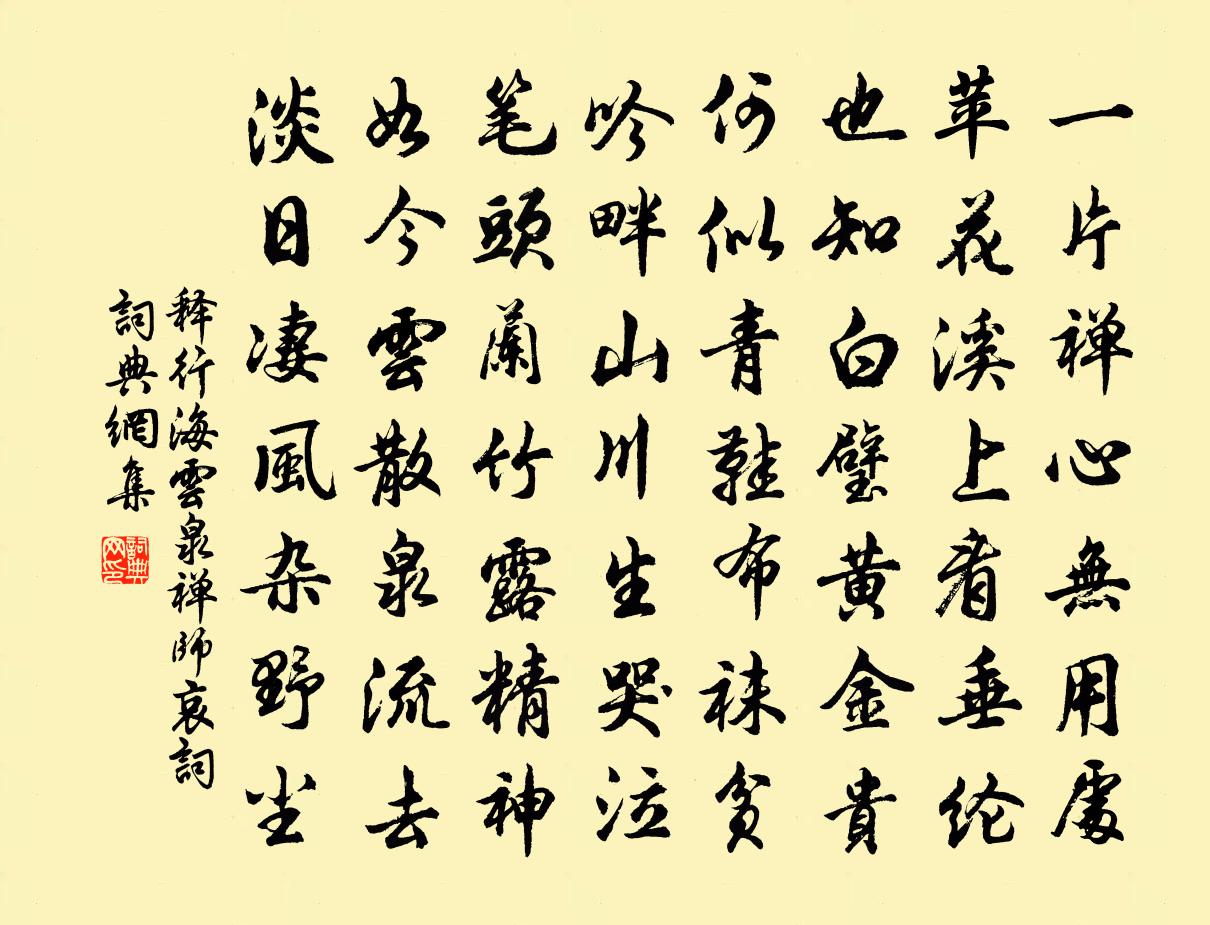 一片禅心無用處
苹花溪上看垂纶
也知白璧黄金貴
何似青鞋布袜貧
吟畔山川生哭泣
笔頭蘭竹露精神
如今雲散泉流去
淡日凄風杂野尘
释行海雲泉禅師哀詞
詞典網集
詞典网印